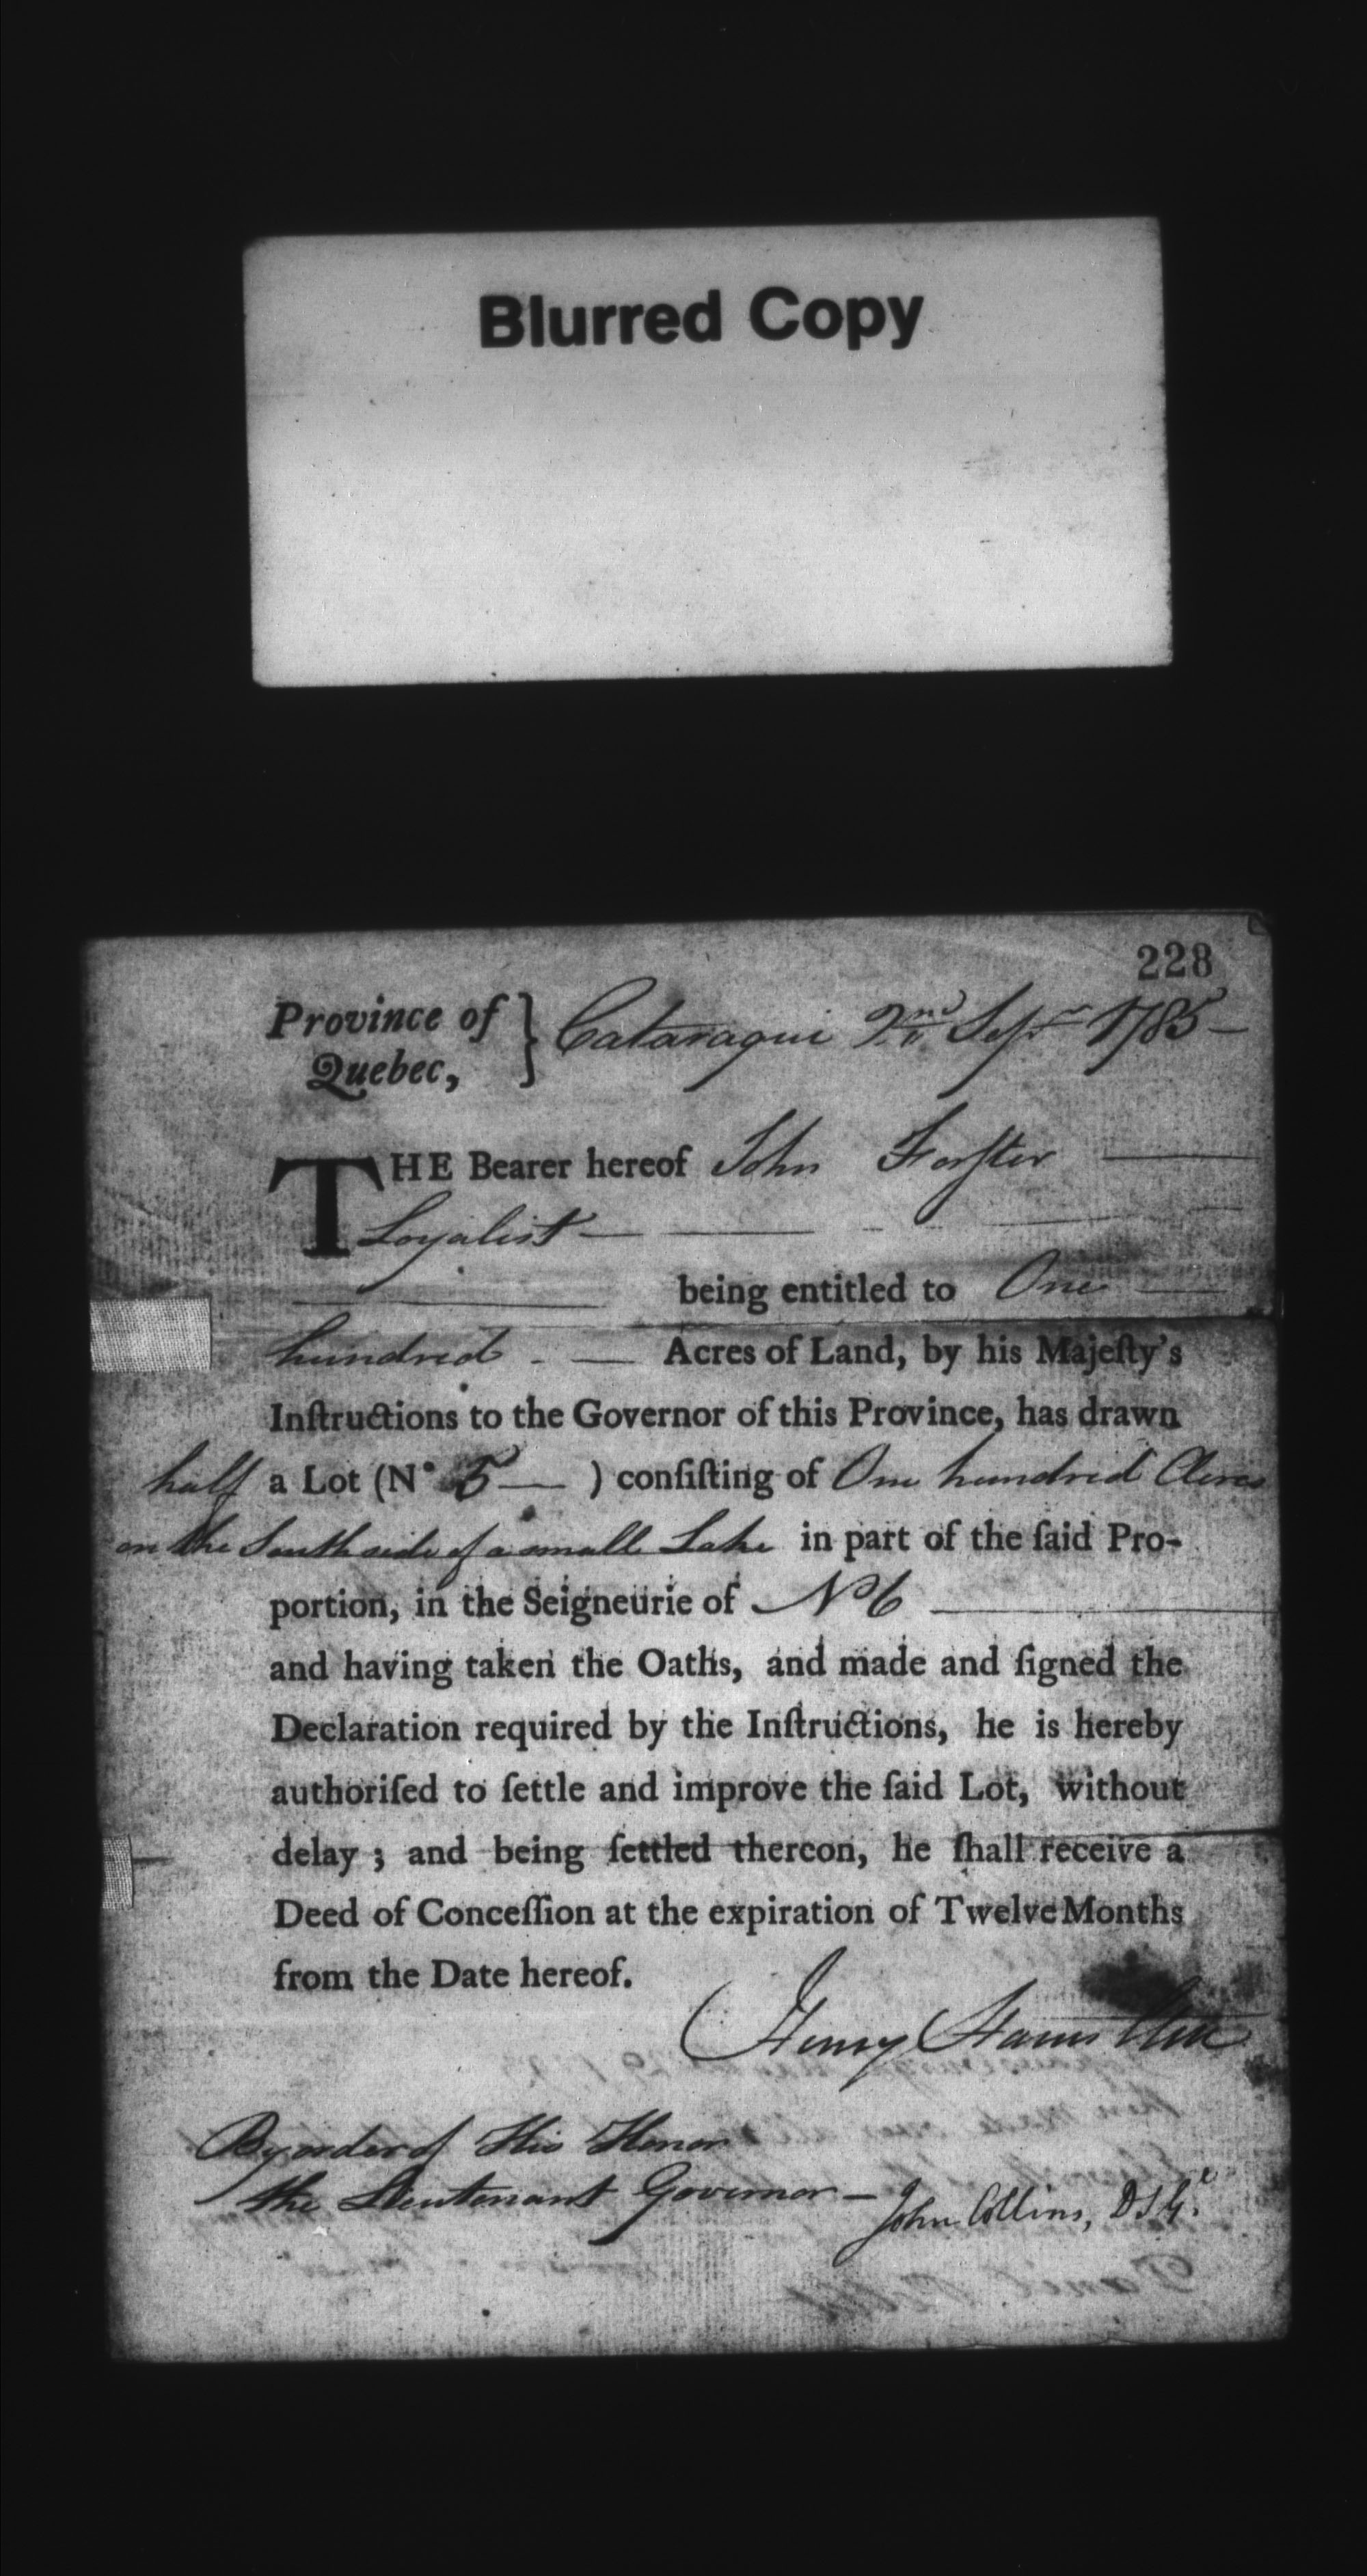 Blurred Copy
228
Province of } Cataraqui 2nd Sepr 1785 —
Quebec,
THE Bearer hereof John Forſter —
Loyalist — —
— being entitled to One —
hundred - — Acres of Land, by his Majeſty's
Inſtructions to the Governor of this Province, has drawn
half a Lot (N° 5 — ) conſiſting of One hundred Acres
on the South side of a small Lake in part of the ſaid Pro-
portion, in the Seigneurie of No 6 —
and having taken the Oaths, and made and ſigned the
Declaration required by the Inſtructions, he is hereby
authoriſed to ſettle and improve the ſaid Lot, without
delay ; and being ſettled thereon, he ſhall receive a
Deed of Conceſſion at the expiration of Twelve Months
from the Date hereof.
Henry Hamilton
By order of His Honor
the Lieutenant Governor —
John Collins, D S Gl